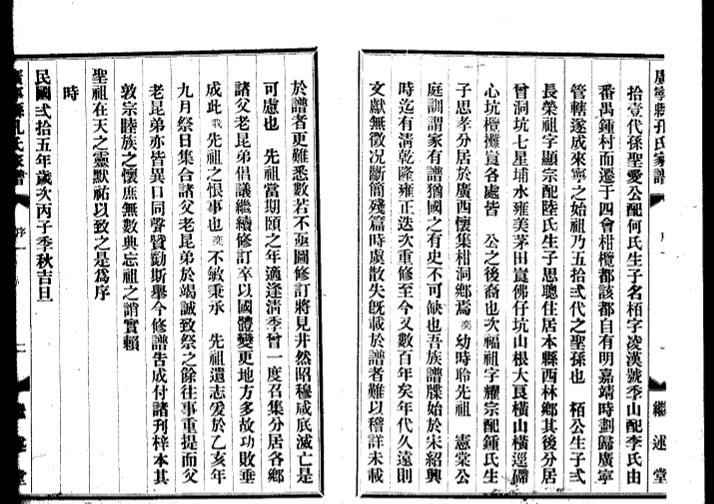 廣寧縣孔氏家譜
序
一
繼述堂
拾壹代孫聖愛公配何氏生子名栢字凌漢號季山配李氏由
番禺鍾村而遷于四會柑欖都該都自有明嘉靖時劃歸廣寧
管轄遂成來寧之始祖乃五拾弍代之聖孫也　栢公生子弍
長榮祖字顯宗配陸氏生子思聰住居本縣西林鄉其後分居
曾洞坑七星埔水雍美茅田寘佛仔坑山根大良橫山橫逕
心坑欖攤寘各處皆　公之後裔也次福祖字耀宗配鍾氏生
子思孝分居於廣西懷集柑洞鄉焉奕幼時聆先祖　憲棠公
庭訓謂家有譜猶國之有史不可缺也吾族譜牒始於宋紹興
時迄有淸乾隆雍正迭次重修至今又數百年矣年代久遠則
文獻無徵况斷簡殘篇時虞散失旣載於譜者難以稽詳未載
於譜者更難悉數若不亟圖修訂將見井然昭穆咸底滅亡是
可慮也　先祖當期頤之年適逢淸季曾一度召集分居各鄉
諸父老昆弟倡議繼續修訂卒以國體變更地方多故功敗垂
成此我先祖之恨事也奕不敏秉承　先祖遺志爰於乙亥年
九月祭日集合諸父老昆弟於竭誠致祭之餘往事重提而父
老昆弟亦皆異口同聲贊勷斯舉今修譜告成付諸刋梓本其
敦宗睦族之懷庶無數典忘祖之誚實賴
聖祖在天之靈默祐以致之是爲序
時
民國弍拾五年歲次丙子季秋吉旦
廣寧縣孔氏家譜
序
二
繼述堂